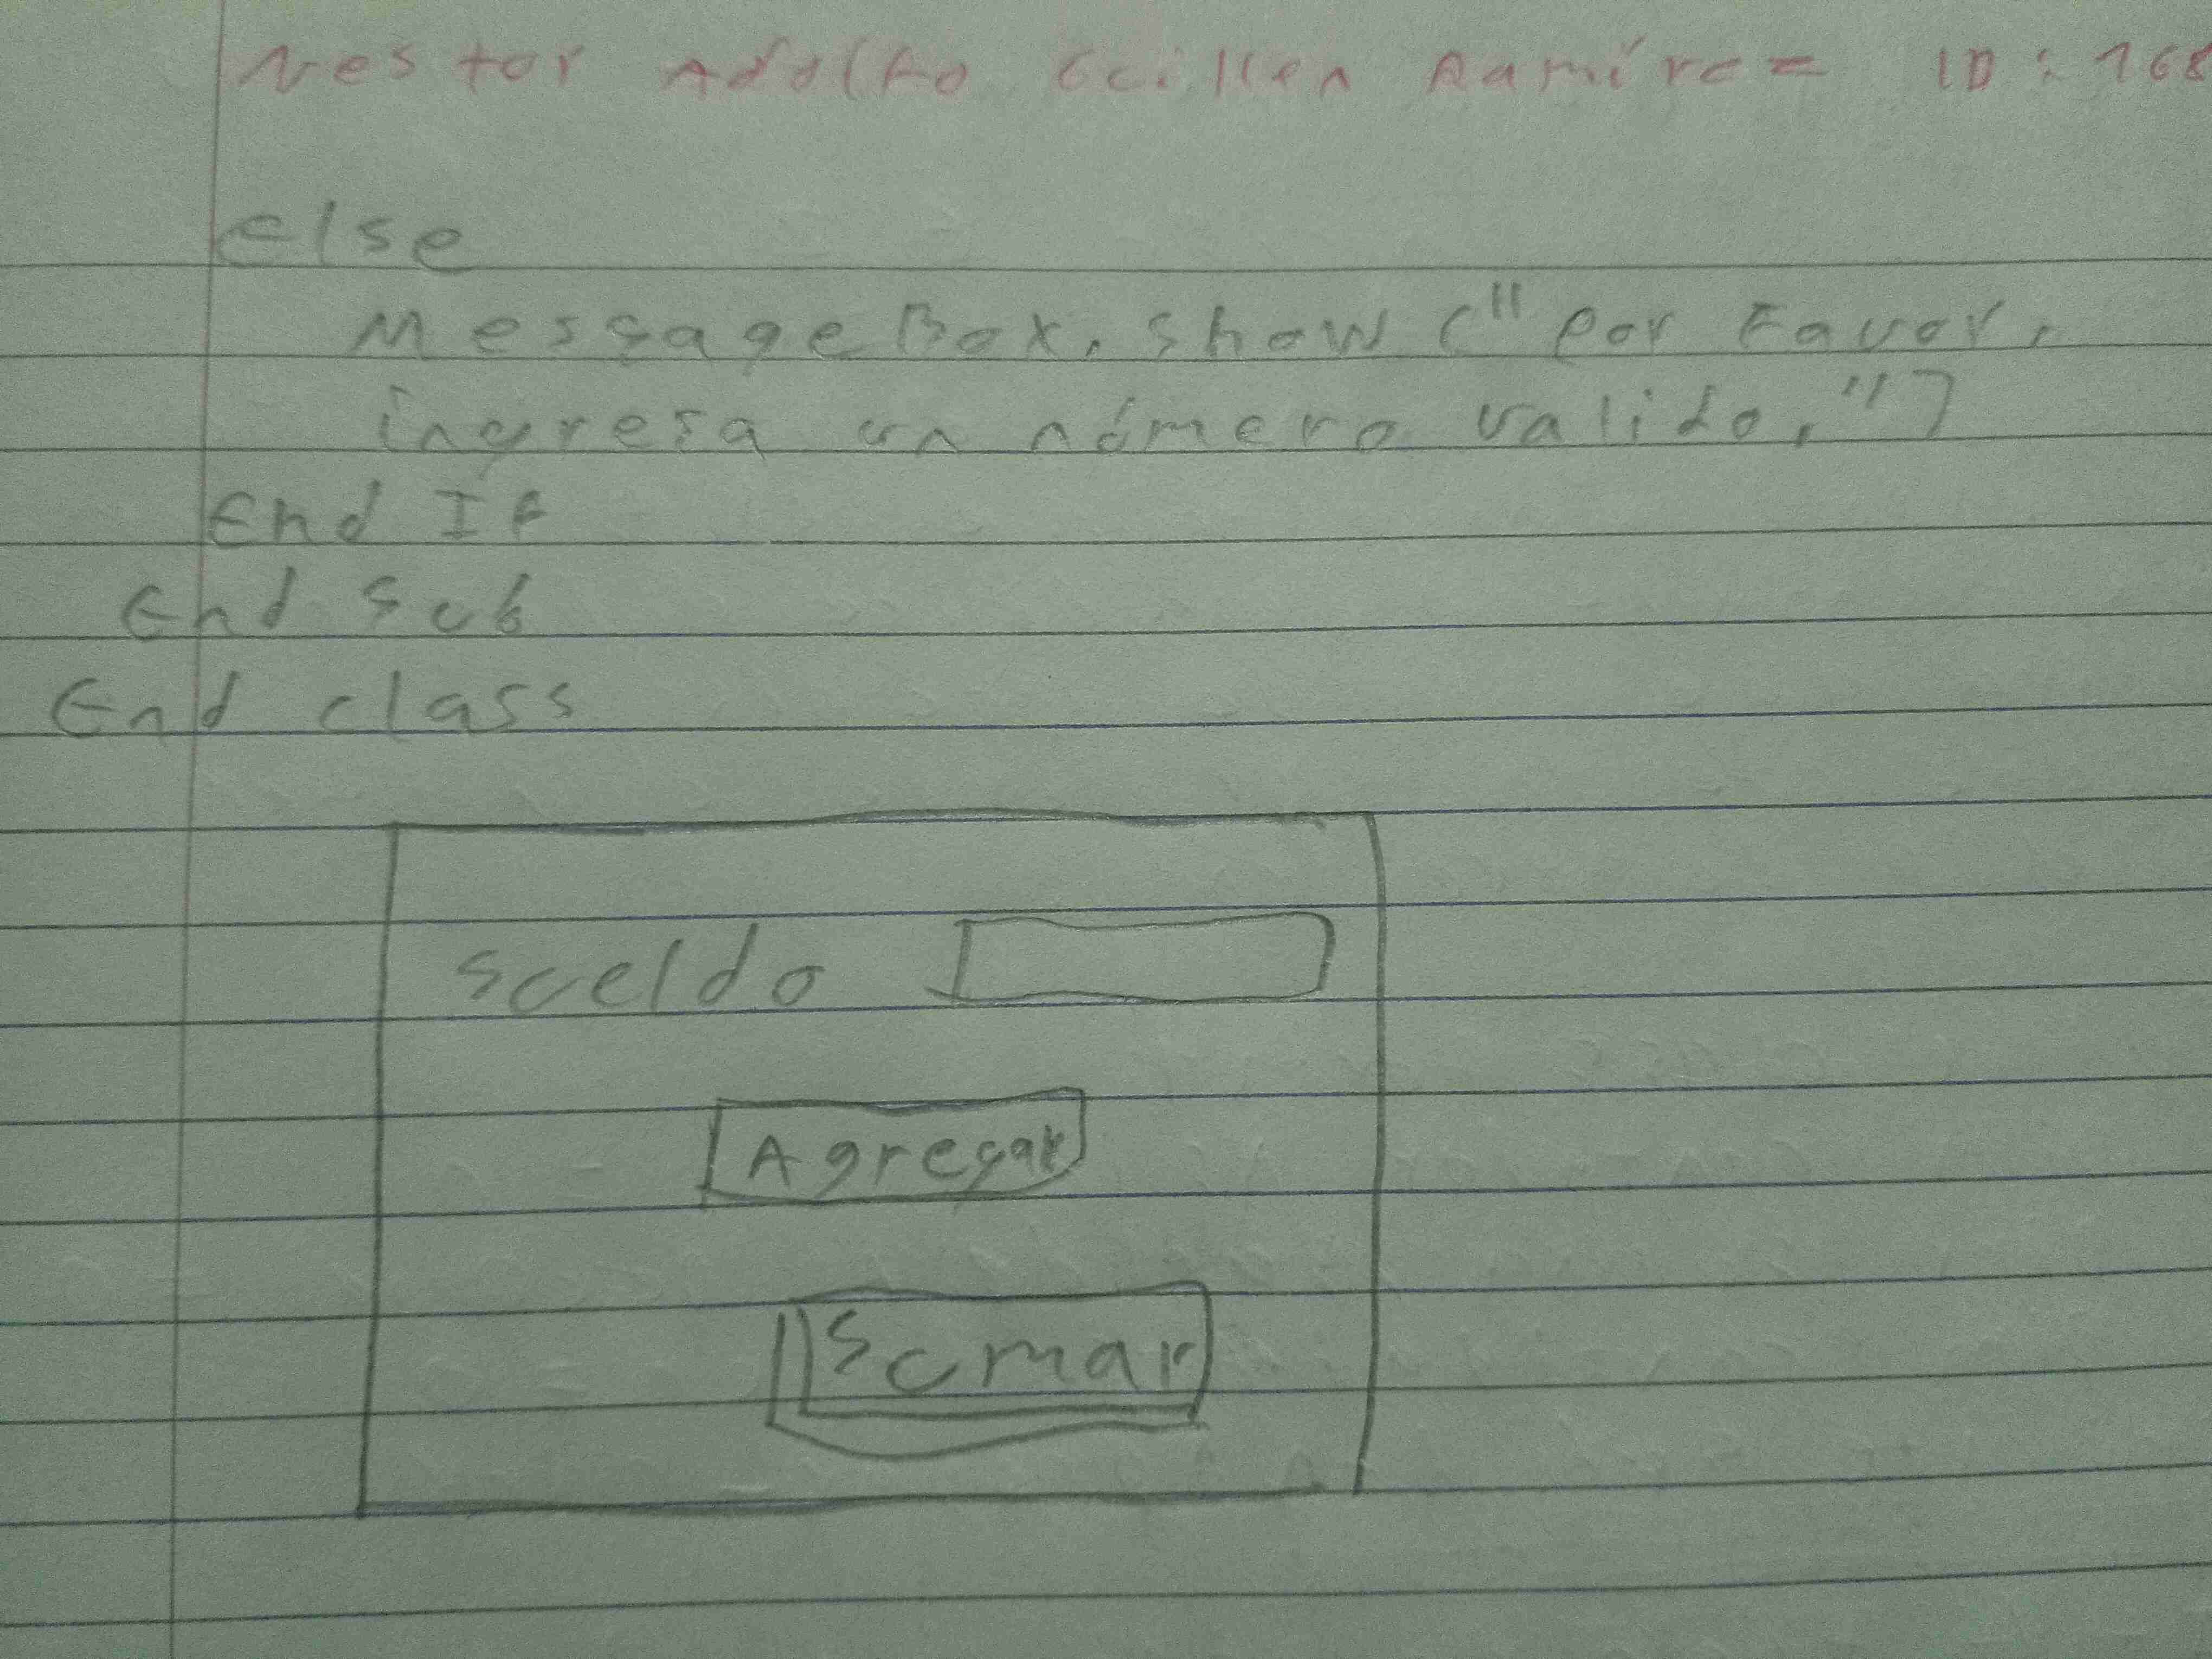 Nestor Adolfo Guillen Ramírez ID: 168
else
MessageBox.show ("por Favor,
ingresa un número valido.")
End If
End Sub
End class
Sueldo
Agregar
Sumar